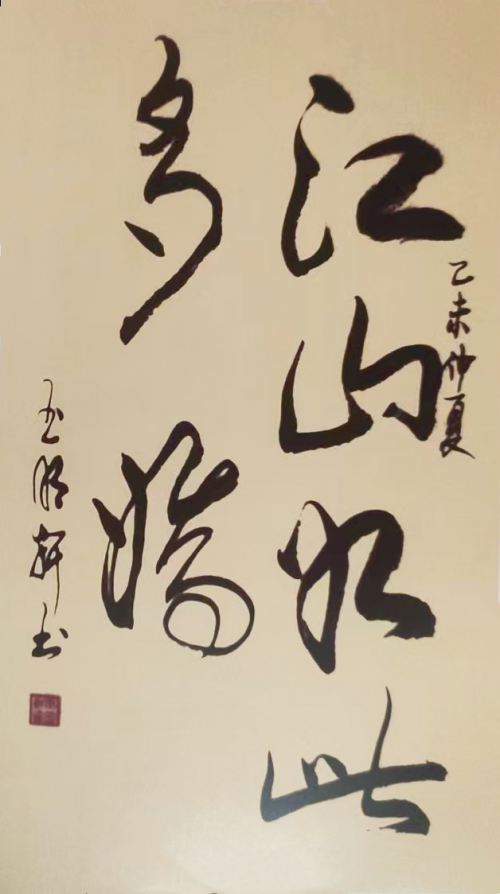 乙未仲夏
江山如此
多娇
玉明轩书